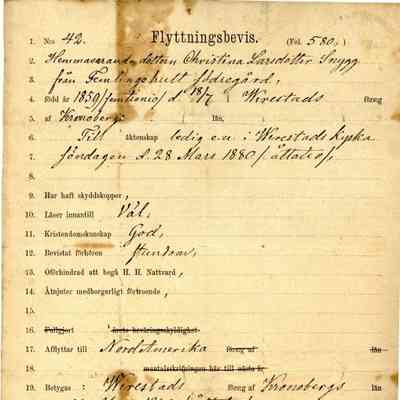 1. N:o 42. Flyttningsbevis. (Fol. 580.)
2. Hemmavarande dottern Christina Larsdotter Snygg
3. från Femlingehult södregård,
4. född år 1859/femtionio/ d. 18/7 i Wirestads förs:g
5. af Kronobergs län.
6. Till äktenskap ledig e.u. i Wirestads Kyrka
7. söndagen d. 28 Mars 1880/åttatio/,
8.
9. Har haft skyddskoppor,
10. Läser innantill Väl,
11. Kristendomskunskap God,
12. Bevistat förhören stundom,
13. Oförhindrad att begå H. H. Nattvard,
14. Åtnjuter medborgerligt förtroende,
15.
16. Fullgjort årets beväringsskyldighet.
17. Afflyttar till Nord Amerika förs:g af län
18. mantalsskrifningen här till
19. Betygas: Wirestads förs:g af Kronobergs län